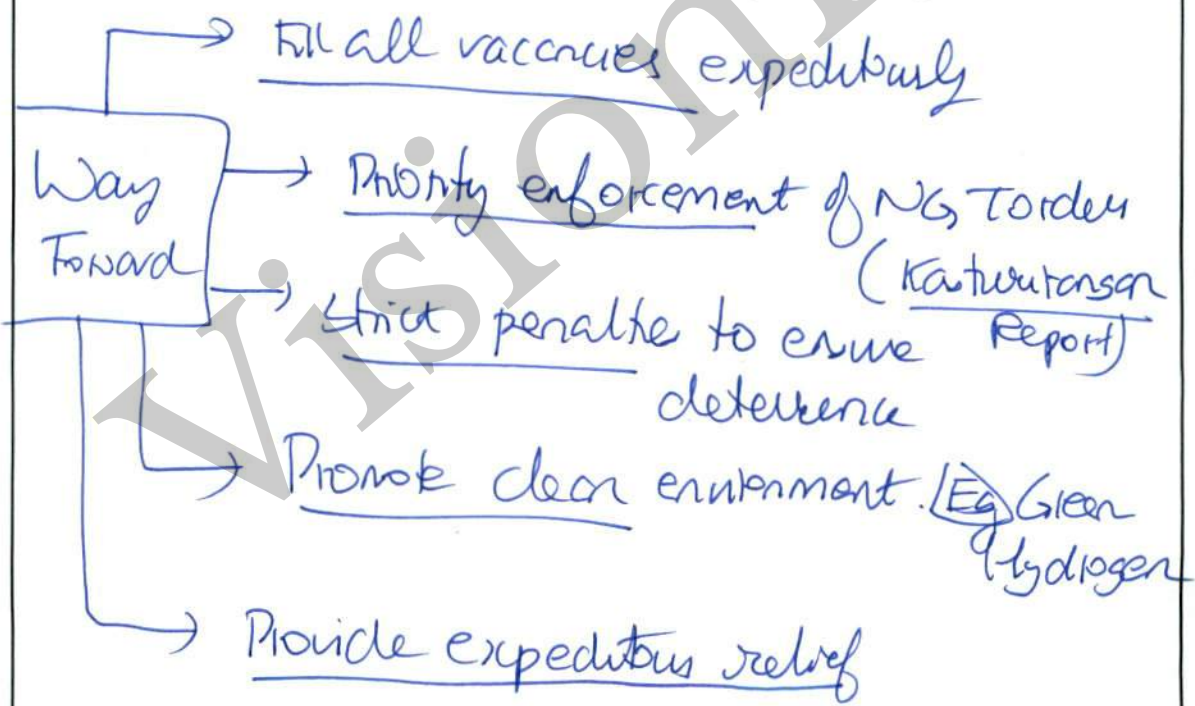 Fill all vacancies expeditiously
Way
Forward
Priority enforcement of NGT orders
(Kasturirangan
Report)
Strict penaltie to ensure
deterrence
Promote clean environment. Eg Green
Hydrogen
Provide expeditious relief
Vision